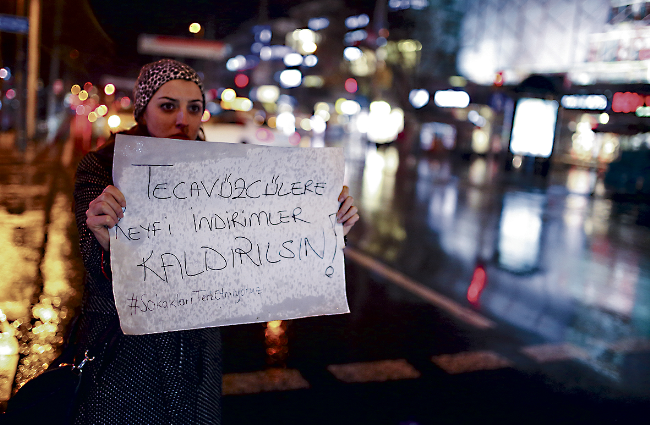 TECAVÜZCÜLERE
KEYFİ İNDİRİMLER
KALDIRILSIN!
#SokaklarıTerkEtmiyoruz